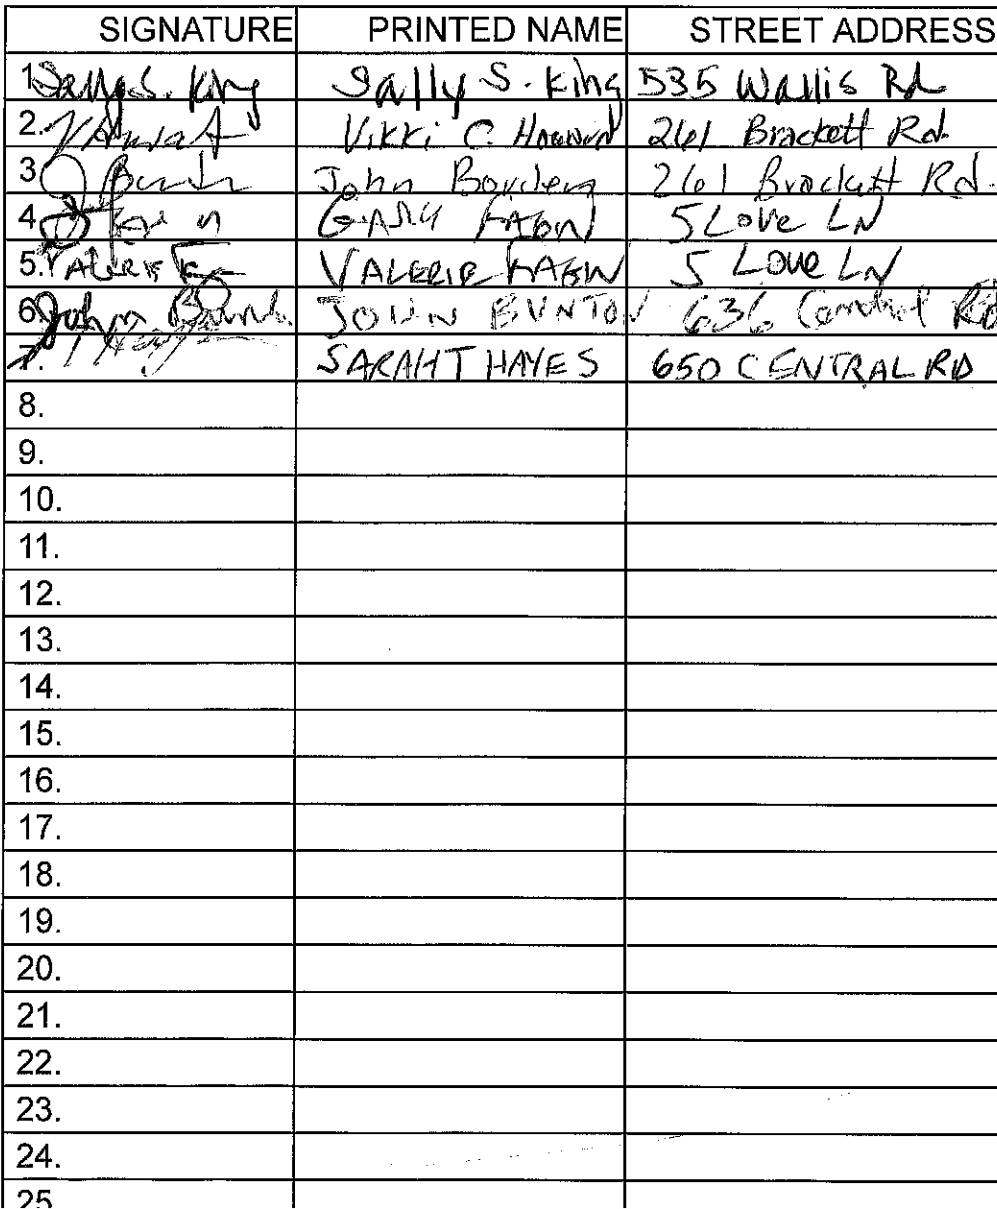 SIGNATURE PRINTED NAME STREET ADDRESS
1. Sally S. King Sally S. King 535 Wallis Rd
2. Vikki C. Howard 261 Brackett Rd.
3. John Borden 261 Brackett Rd.
4. GARY 5 Love LN
5. VALERIE VALERIE 5 Love LN
6. John JOHN BUNTON 636 Central Rd
7. SARAH T HAYES 650 CENTRAL RD
8.
9.
10.
11.
12.
13.
14.
15.
16.
17.
18.
19.
20.
21.
22.
23.
24.
25